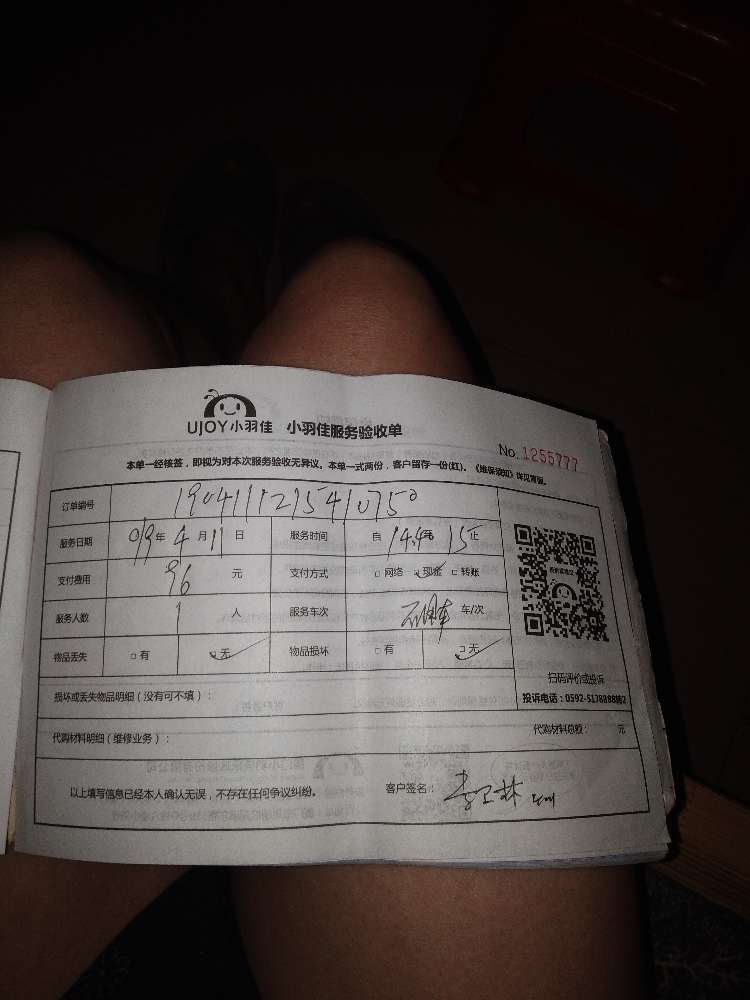 UJOY小羽佳 小羽佳服务验收单
No. 1255777
本单一经核签，即视为对本次服务验收无异议。本单一式两份，客户留存一份(红)。《维保须知》详见背面。
订单编号 1904111215410750
服务日期 019年4月11日 服务时间 自 14.4 至 15 止
支付费用 96 元 支付方式 □网络 ☑现金 □转账
服务人数 1 人 服务车次 车/次
物品丢失 □有 ☑无 物品损坏 □有 ☑无
扫码评价或投诉
投诉电话：0592-5178888转2
损坏或丢失物品明细（没有可不填）：
代购材料明细（维修业务）： 代购材料总额： 元
以上填写信息已经本人确认无误，不存在任何争议纠纷。 客户签名：